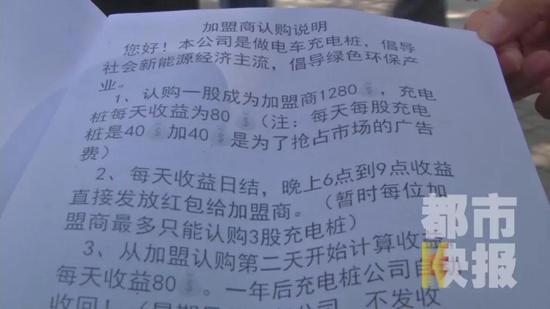 加盟商认购说明
您好！本公司是做电车充电桩，倡导
社会新能源经济主流，倡导绿色环保产
业。
1、认购一股成为加盟商1280，充电
桩每天收益为80（注：每天每股充电
桩是40加40是为了抢占市场的广告
费）
2、每天收益日结，晚上6点到9点收益
直接发放红包给加盟商。（暂时每位加
盟商最多只能认购3股充电桩）
3、从加盟认购第二天开始计算收益
每天收益80。一年后充电桩公司自
收回！
不发收
都市
快报